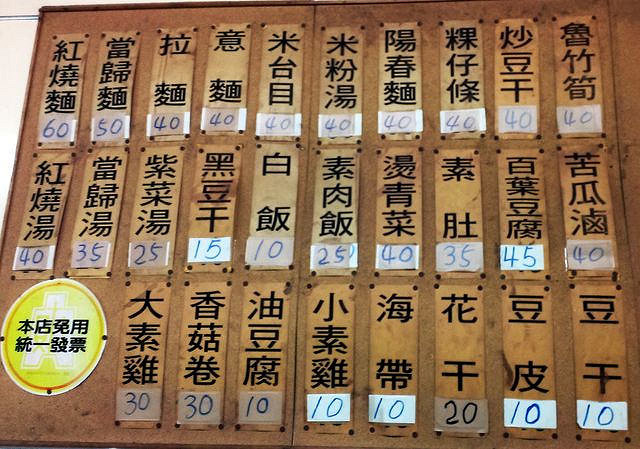 紅燒麵 60
當歸麵 50
拉麵 40
意麵 40
米台目 40
米粉湯 40
陽春麵 40
粿仔條 40
炒豆干 40
魯竹筍 40
紅燒湯 40
當歸湯 35
紫菜湯 25
黑豆干 15
白飯 10
素肉飯 25
燙青菜 40
素肚 35
百葉豆腐 45
苦瓜滷 40
本店免用
統一發票
大素雞 30
香菇卷 30
油豆腐 10
小素雞 10
海帶 10
花干 20
豆皮 10
豆干 10